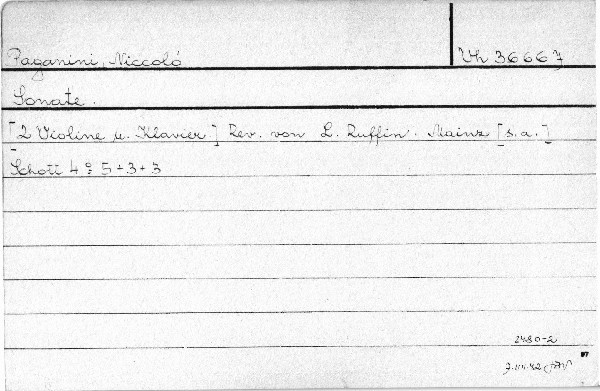 Paganini, Niccoló
Vh 36667
Sonate.
[2 Violine u. Klavier.] Rev. von L. Ruffin. Mainz [s.a.]
Schott 4° 5+3+3
2480-2
97